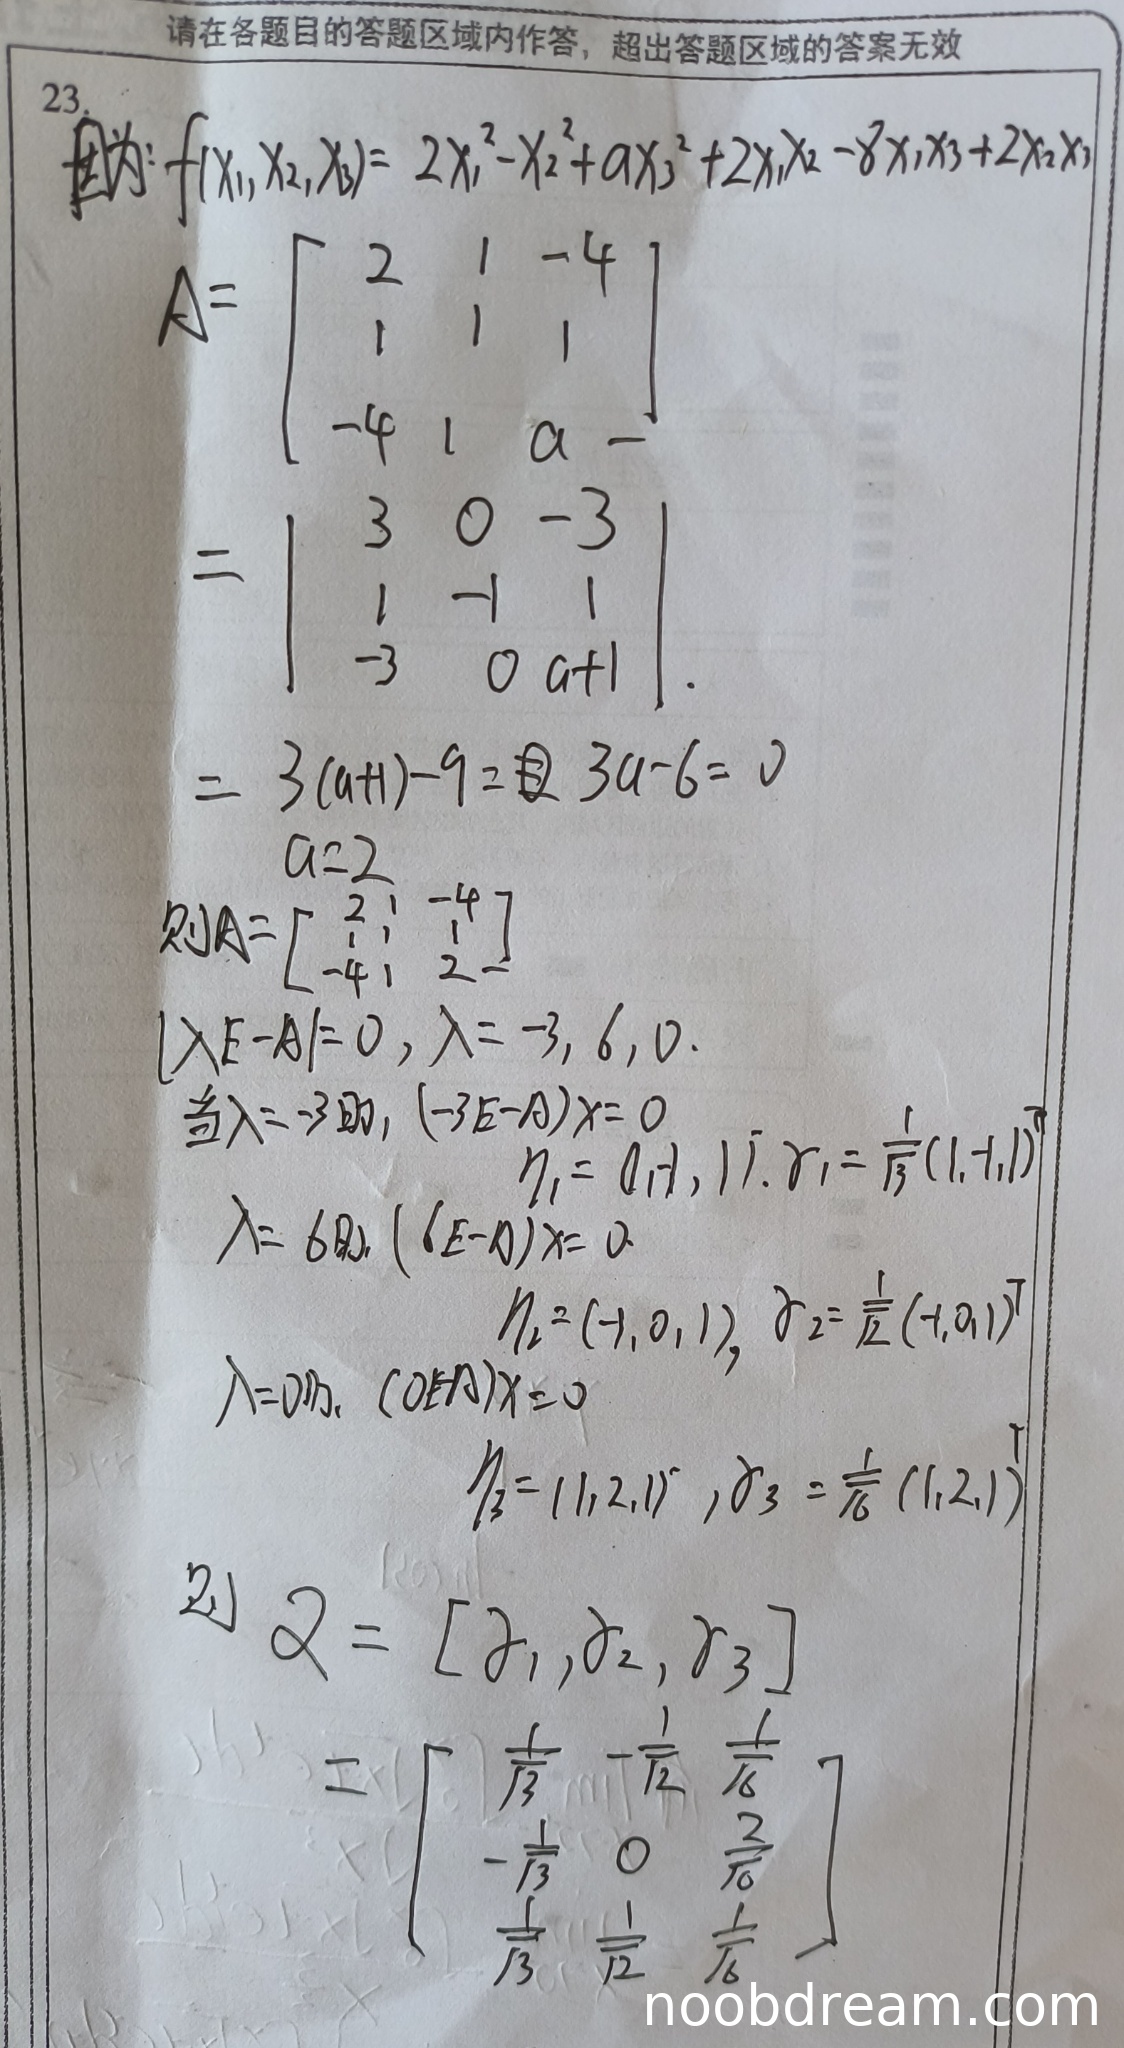 请在各题目的答题区域内作答，超出答题区域的答案无效
23.
因为: f(x₁, x₂, x₃) = 2x₁² - x₂² + ax₃² + 2x₁x₂ - 8x₁x₃ + 2x₂x₃
A = [ 2 1 -4
1 1 1
-4 1 a ]
= | 3 0 -3
1 -1 1
-3 0 a+1 | .
= 3(a+1) - 9 = 3a - 6 = 0
a = 2
则A = [ 2 1 -4
1 1 1
-4 1 2 ]
|λE - A| = 0, λ = -3, 6, 0.
当λ = -3时, (-3E - A)x = 0
η₁ = (1, -1, 1)ᵀ. γ₁ = 1/√3 (1, -1, 1)ᵀ
λ = 6时. (6E - A)x = 0.
η₂ = (-1, 0, 1), γ₂ = 1/√2 (-1, 0, 1)ᵀ
λ = 0时. (0E-A)x = 0
η₃ = (1, 2, 1)ᵀ, γ₃ = 1/√6 (1, 2, 1)ᵀ
则 Q = [γ₁, γ₂, γ₃]
= [ 1/√3 -1/√2 1/√6
-1/√3 0 2/√6
1/√3 1/√2 1/√6 ]
noobdream.com